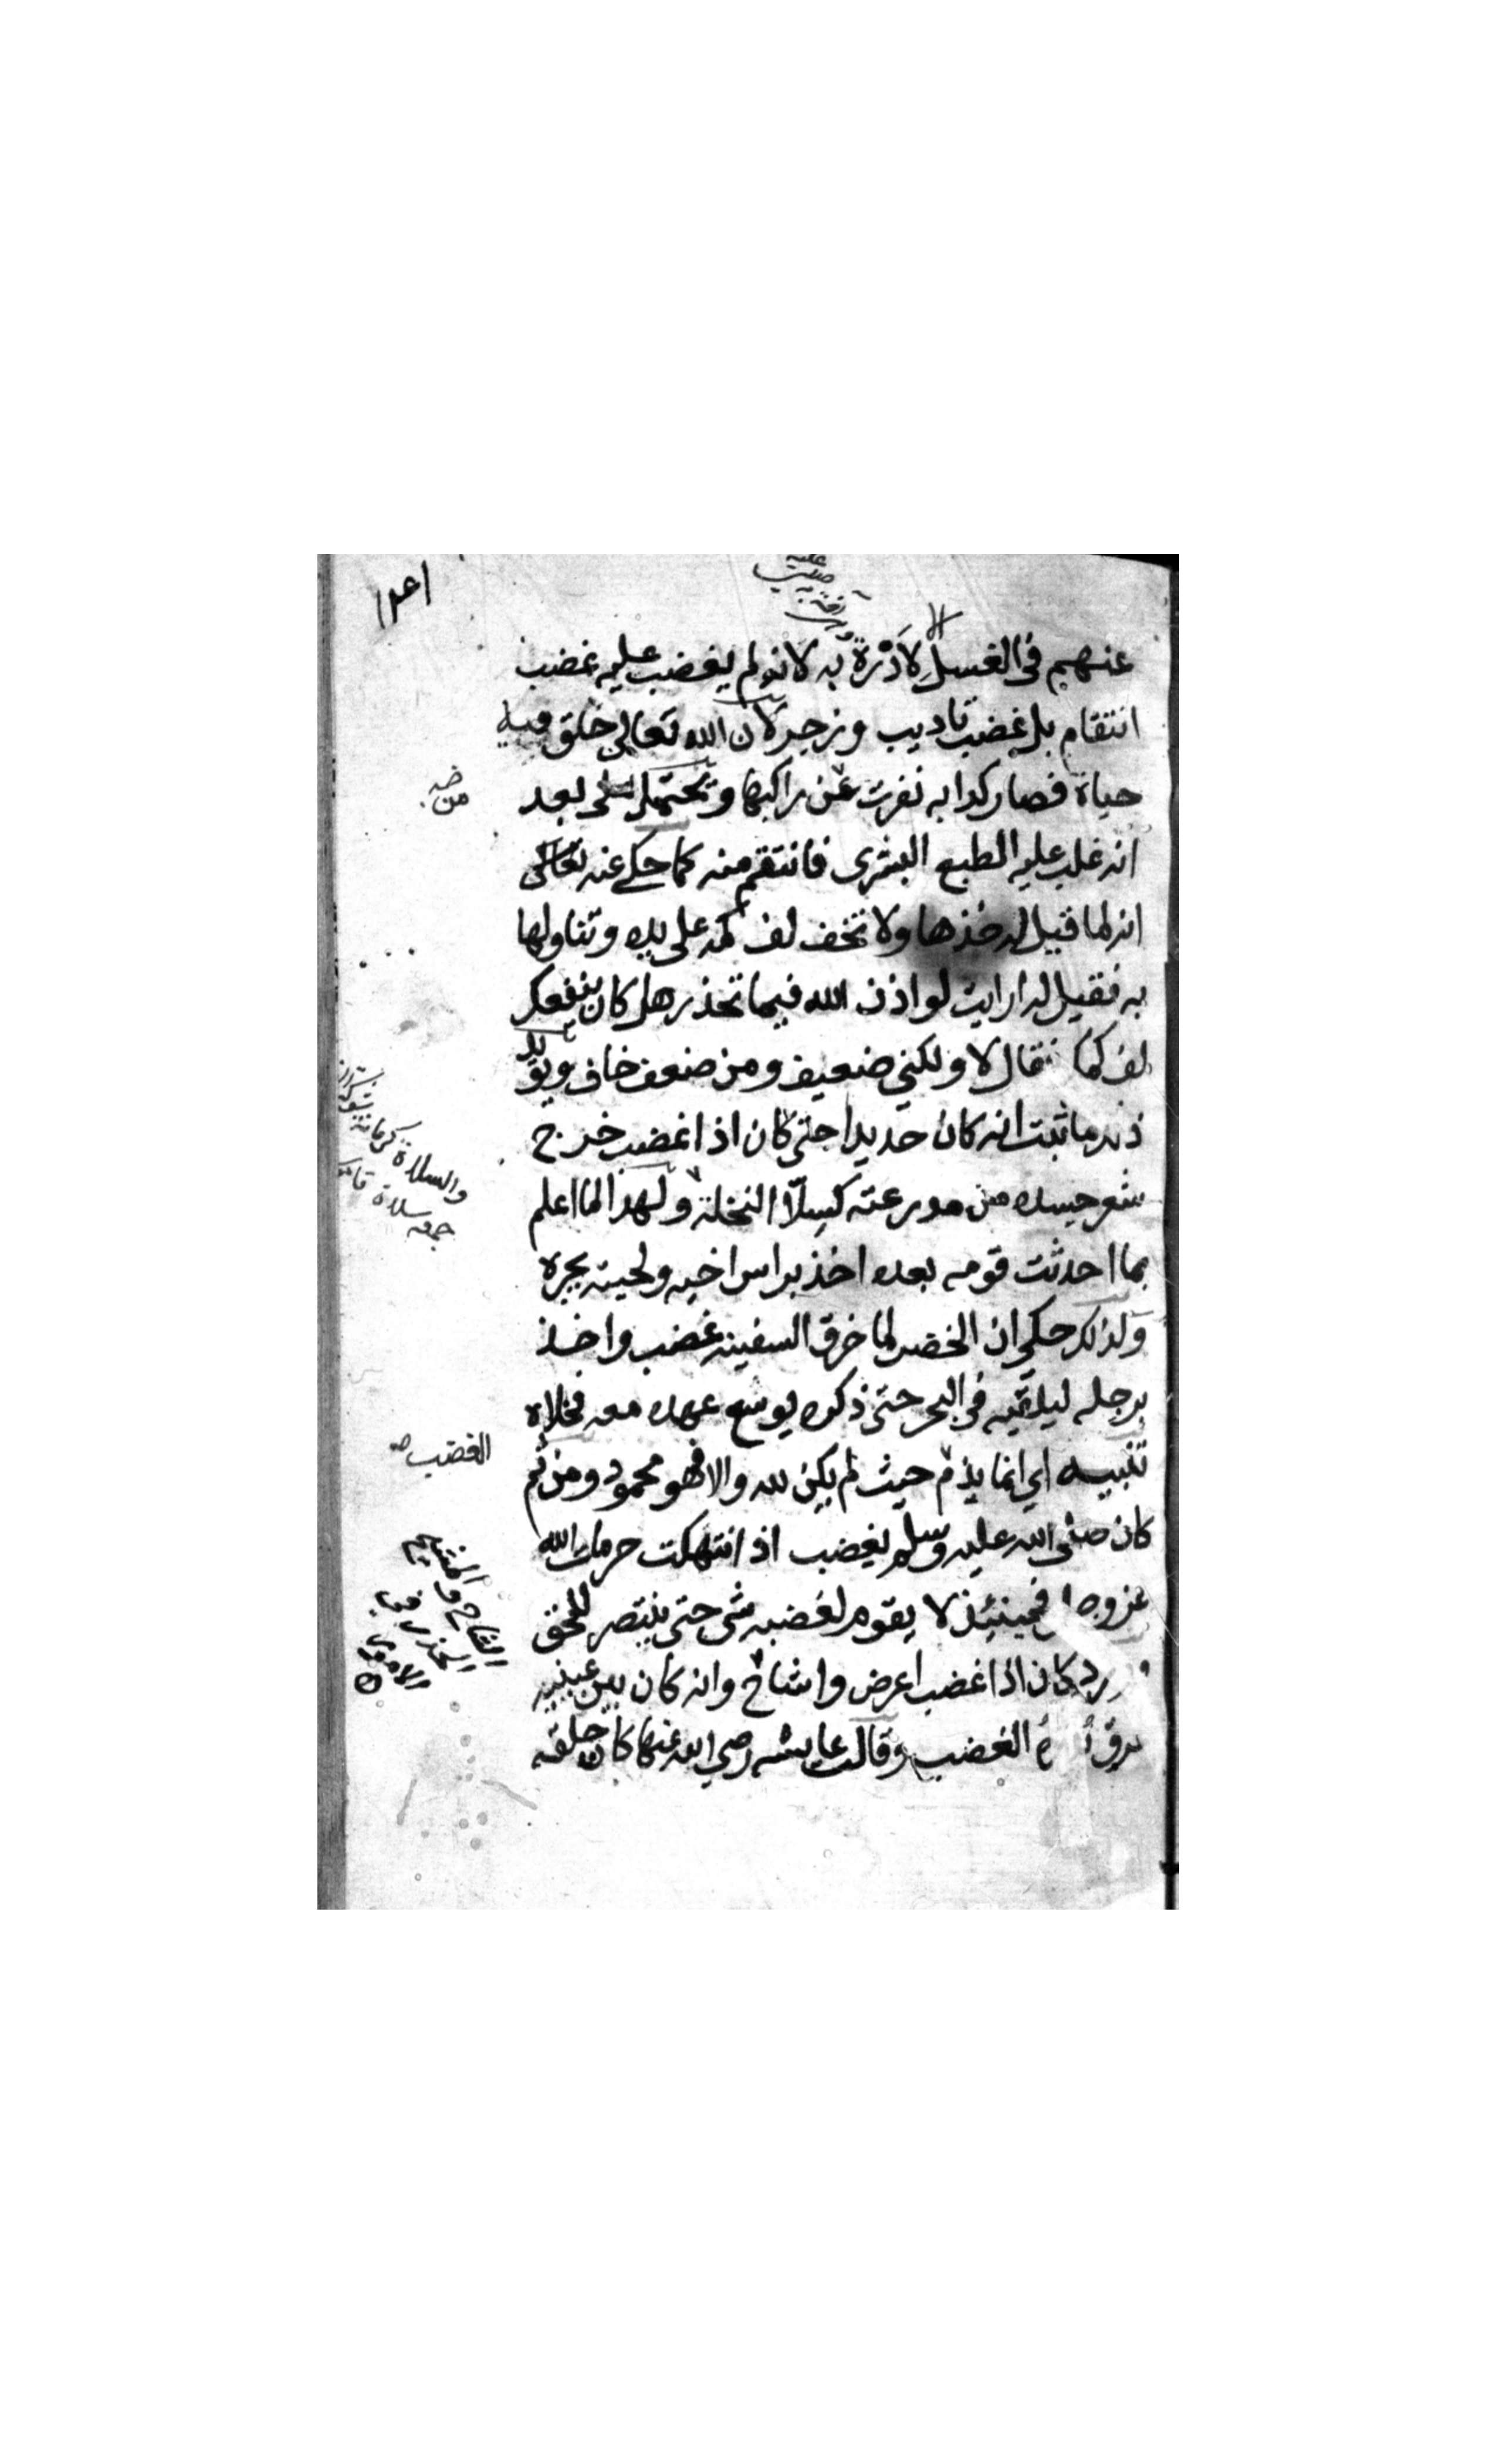 عنهم في الغسل لاَدْرَة به لانه لم يغضب عليه غضب
انتقام بل غضب تاديب وزجر لان الله تعالى خلق فيه
حياة فصار كدابه نفرت من راكبها ويحتمل على بعد
انه غلب عليه الطبع البشرى فانتقم منه كما حكى عنه تعالى
انه لما قيل له خذها ولا تخف لف كمه على يده وتناولها
به فقيل له ارايت لو اذن الله فيما تحذر هل كان ينفعك
لف كمك فقال لا ولكني ضعيف ومن ضعف خاف ويويد
ذلك ما ثبت انه كان حديدا حتى كان اذا غضب خرج
شعر جسده من مدرعته كسِلّا النخلة ولهذا لما اعلم
بما احدثت قومه بعده اخذ براس اخيه ولحيته يجره
ولذلك حكي ان الخضر لما خرق السفينه غضب واخذ
برجله ليلقيه في البحر حتى ذكره يوشع عهده معه فخلاه
تنبيه اي انما يذم حيث لم يكن لله والا فهو محمود ومن ثم
كان صلى الله عليه وسلم يغضب اذا انتهكت حرمات الله
عز وجل فحينئذ لا يقوم لغضبه شي حتى ينتصر للحق
وورد كان اذا غضب اعرض واشاح وانه كان بين عينيه
عرق الغضب وقالت عايشه رضي الله عنها كان خلقه
منه
والسلاة
جمعه سلاة
الغضب صح